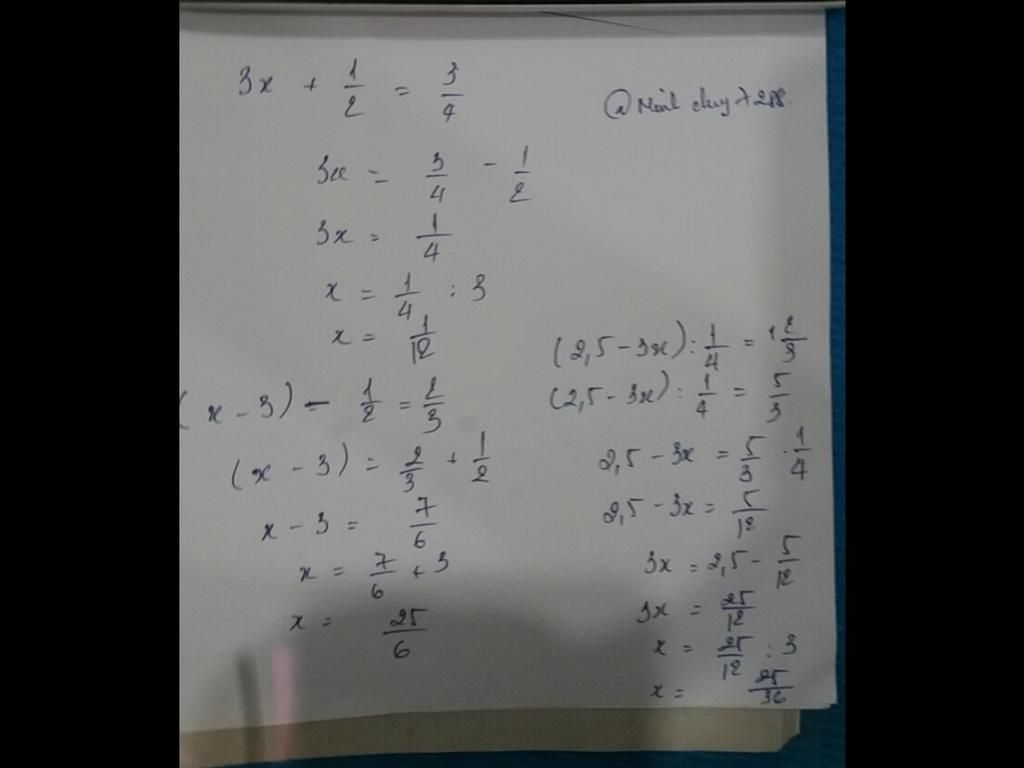 3x + 1/2 = 3/4
3x = 3/4 - 1/2
3x = 1/4
x = 1/4 : 3
x = 1/12
(x - 3) - 1/2 = 2/3
(x - 3) = 2/3 + 1/2
x - 3 = 7/6
x = 7/6 + 3
x = 25/6
(2,5 - 3x) : 1/4 = 1 2/3
(2,5 - 3x) : 1/4 = 5/3
2,5 - 3x = 5/3 . 1/4
2,5 - 3x = 5/12
3x = 2,5 - 5/12
3x = 25/12
x = 25/12 : 3
x = 25/36